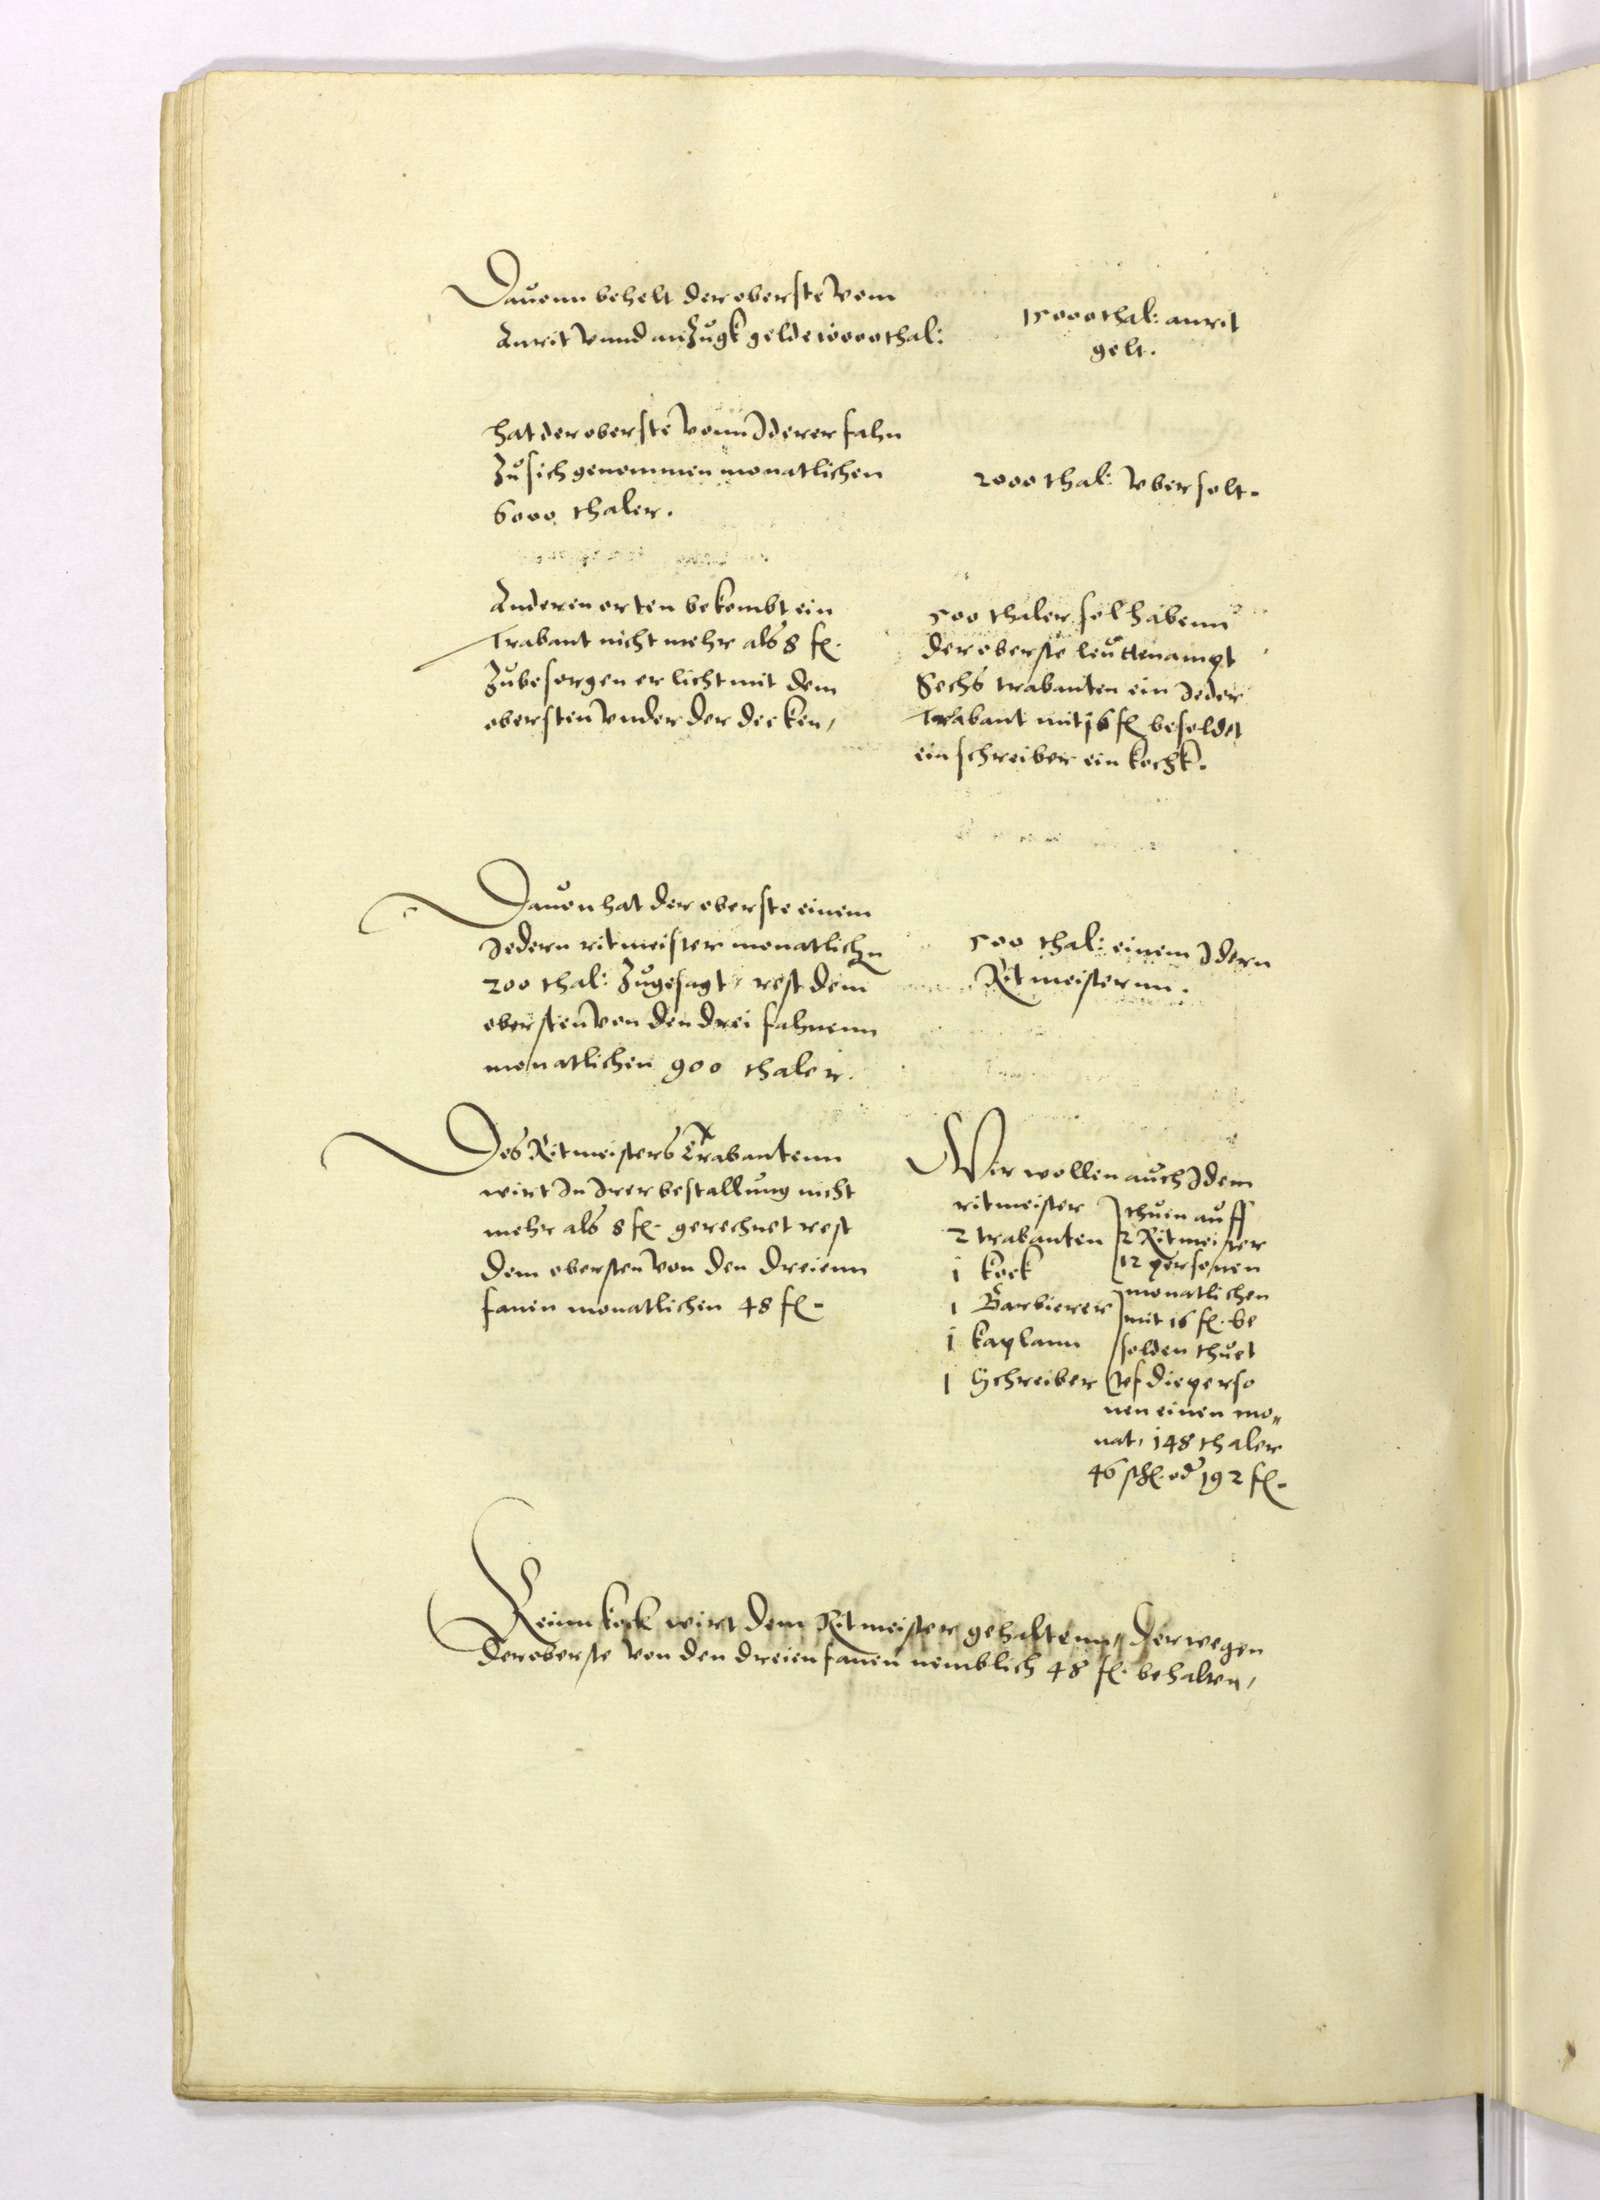 Dauonn behelt der oberste vom
Anrit vnnd anzugk gelde 10000 thal:
15000 thal: anrit
gelt.
hat der oberste vonn Jderer fahn
zu sich genommen monatlichen
6000 thaler.
2000 thal: vbersolt.
Anderen orten bekombt ein
Trabant nicht mehr als 8 fl.
Zubesorgen er licht mit dem
obersten vnder der decken,
500 thaler sol habenn
der oberste leuttenampt
Sechs trabanten ein Jeder
Trabant mit 16 fl besoldet
ein schreiber ein kochk.
Dauon hat der oberste einem
Jedern ritmeister monatlichn
200 thal: zugesagt, rest dem
obersten von den drei fahnenn
monatlichen 900 thaler.
500 thal: einem Jdern
Ritmeisternn.
Des Ritmeisters Trabantenn
wirt Jn Jrer bestallung nicht
mehr als 8 fl. gerechnet rest
dem obersten von den dreienn
fanen monatlichen 48 fl.
Wir wollen auch Jdem
ritmeister
2 trabanten
1 kock
1 Barbierer
1 kaplann
1 Schreiber
thuen auff
2 Ritmeister
12 personen
monatlichen
mit 16 fl. be
solden thuet
vf die perso
nen einen mo„
nat, 148 thaler
46 schl. od 192 fl.
Keinn kock wirt dem Ritmeister gehaltenn, derwegen
der oberste von den dreien fanen nemblich 48 fl. behalten,